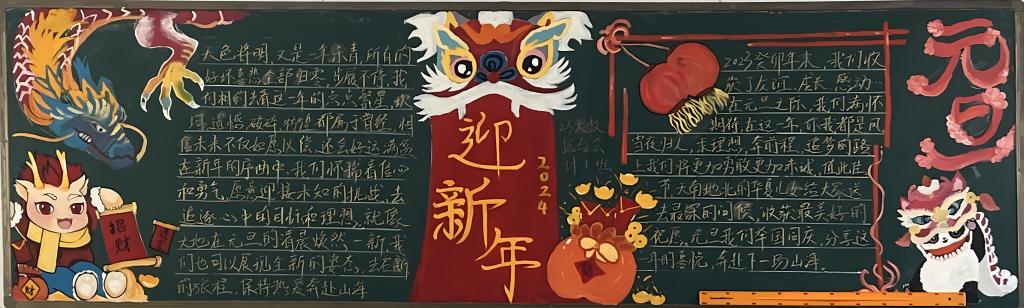 天色将明,又是一年东青,所有的
好坏喜悲全部归零,步履不停,我
们相约去看这一年的
遗憾破碎,都属于曾经,但
信未来不仅如愿以偿,还会好运满盈
在新年的序曲中,我们怀揣着信心
和勇气,愿意迎接未知的挑战,去
追逐心中的目标和理想,就像
大地在元旦的清晨焕然一新,我
们也可以展现全新的姿态,去在新
的旅程,保持热爱奔赴山海
招财
财
迎新年
2024
23大数
计1班
2023癸卯年末,我们收
获了友谊、成长、感动
在元旦之际,我们满怀
期待,在这一年,你我都是风
当夜归人,求理想,奔前程,追梦的路
上我们将更加勇敢更加赤诚,值此佳
节天南地北的华夏儿女给大家送
去最深的问候,收获最美好的
祝愿,元旦我们举国同庆,分享这
一年的喜悦,奔赴下一场山海.
元旦